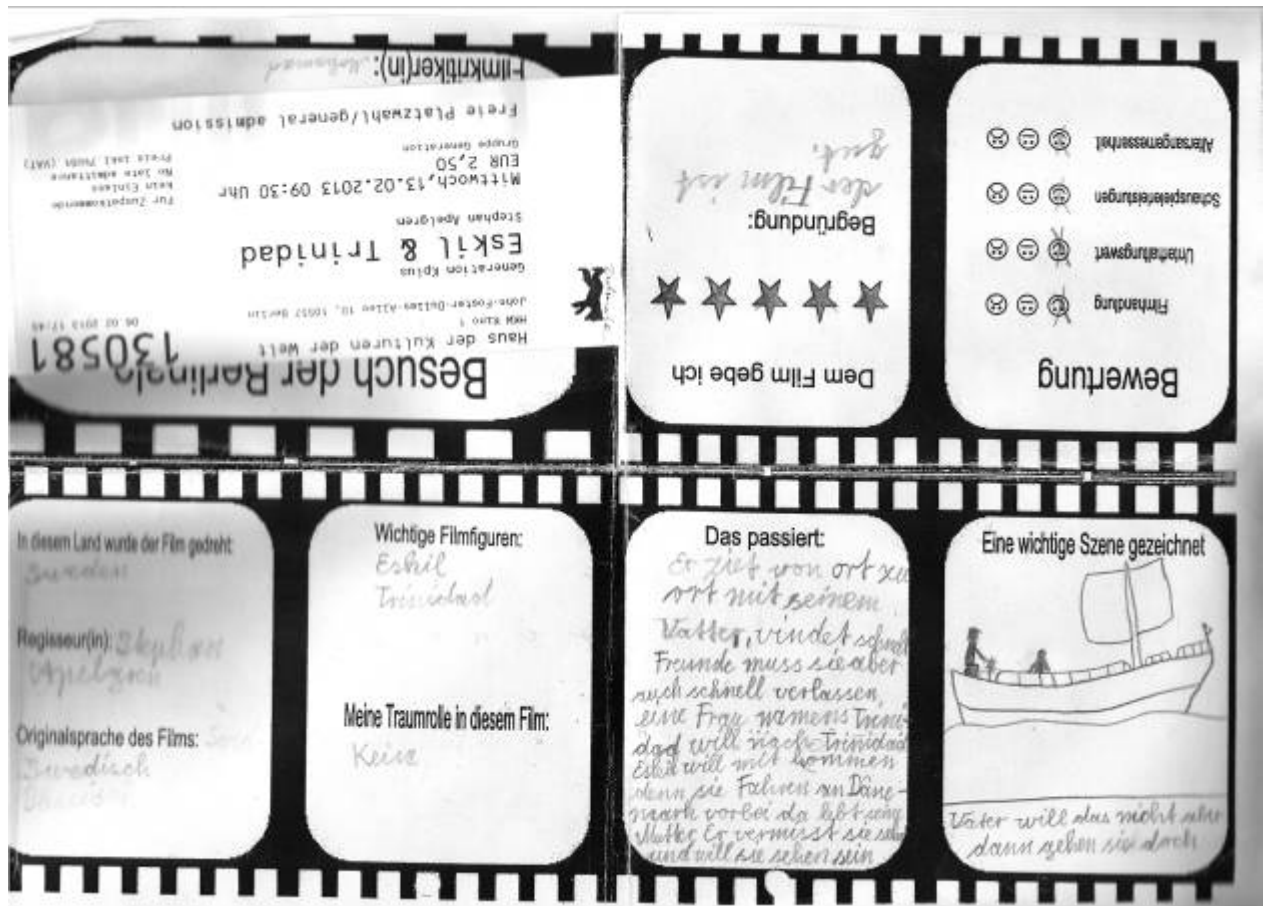 Besuch der Berlinale
130581
06 02 2013 17:45
Haus der Kulturen der Welt
HKW Kino 1
John-Foster-Dulles-Allee 10, 10557 Berlin
Generation Kplus
Eskil & Trinidad
Stephan Apelgren
Mittwoch,13.02.2013 09:30 Uhr
EUR 2,50
Gruppe Generation
Für Zuspätkommende
kein Einlass
No late admittance
Preis inkl MwSt (VAT)
Freie Platzwahl/general admission
Filmkritiker(in):
Bewertung
Filmhandlung
Unterhaltungswert
Schauspielerleistungen
Altersangemessenheit
Dem Film gebe ich
Begründung:
der Film ist
gut.
In diesem Land wurde der Film gedreht:
Sweden
Regisseur(in): Stephan
Apelgren
Originalsprache des Films:
Swedisch
Wichtige Filmfiguren:
Eskil
Trinidad
Meine Traumrolle in diesem Film:
Keine
Das passiert:
Er ziet von ort zu
ort mit seinem
Vatter, vindet schnell
Freunde muss sie aber
auch schnell verlassen,
eine Frau namens Trini-
dad will nach Trinidad
Eskil will mit kommen
denn sie Fahren an Däne-
mark vorbei da lebt seine
Mutter Er vermisst sie sehr
und will sie sehen sein
Eine wichtige Szene gezeichnet
Vater will das nicht aber
dann gehen sie doch